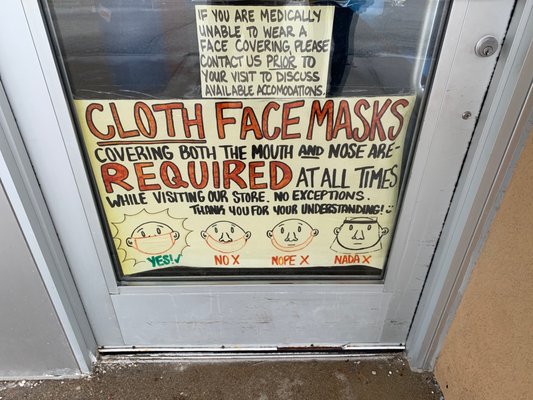 IF YOU ARE MEDICALLY
UNABLE TO WEAR A
FACE COVERING, PLEASE
CONTACT US PRIOR TO
YOUR VISIT TO DISCUSS
AVAILABLE ACCOMODATIONS.
CLOTH FACE MASKS
COVERING BOTH THE MOUTH AND NOSE ARE-
REQUIRED AT ALL TIMES
WHILE VISITING OUR STORE. NO EXCEPTIONS.
THANK YOU FOR YOUR UNDERSTANDING! :)
YES! ✓ NO X NOPE X NADA X